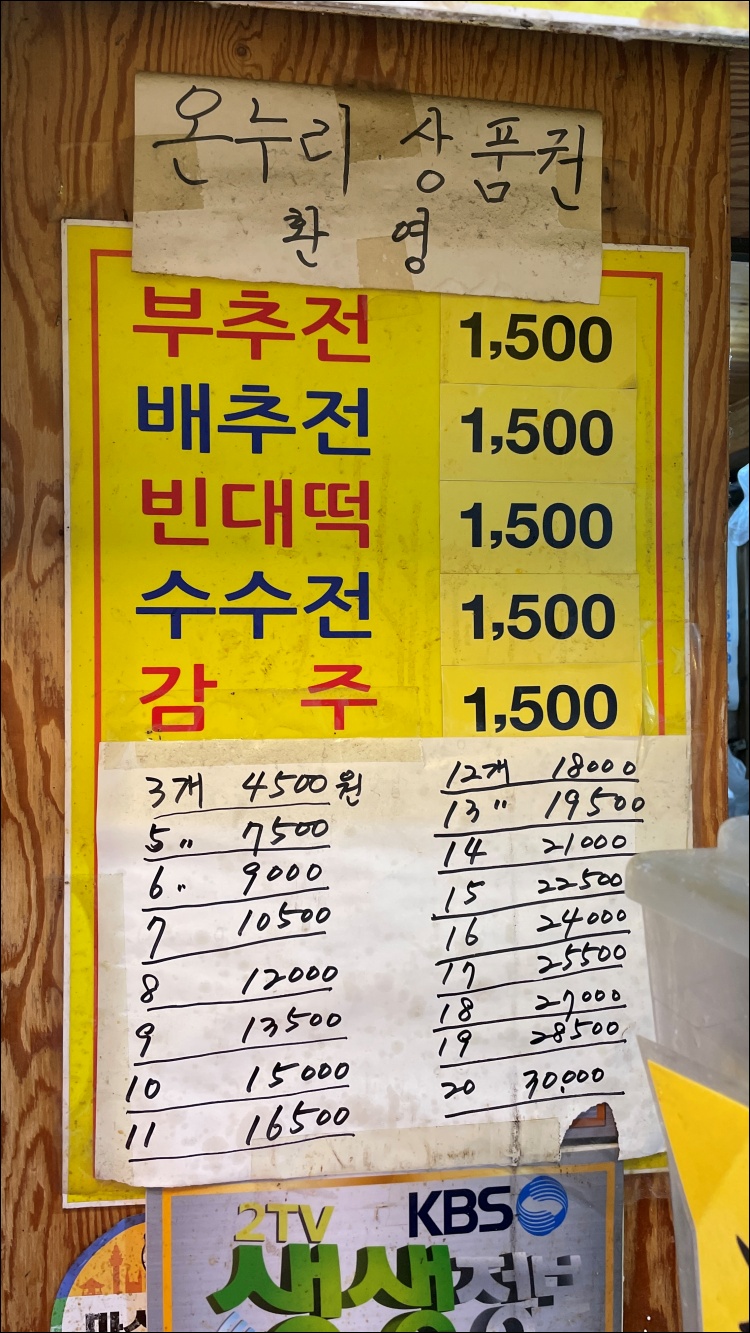 온누리 상품권
환영
부추전 1,500
배추전 1,500
빈대떡 1,500
수수전 1,500
감 주 1,500
3개 4500원
5 〃 7500
6 〃 9000
7 10500
8 12000
9 13500
10 15000
11 16500
12개 18000
13 〃 19500
14 21000
15 22500
16 24000
17 25500
18 27000
19 28500
20 30,000
2TV KBS
생생정보